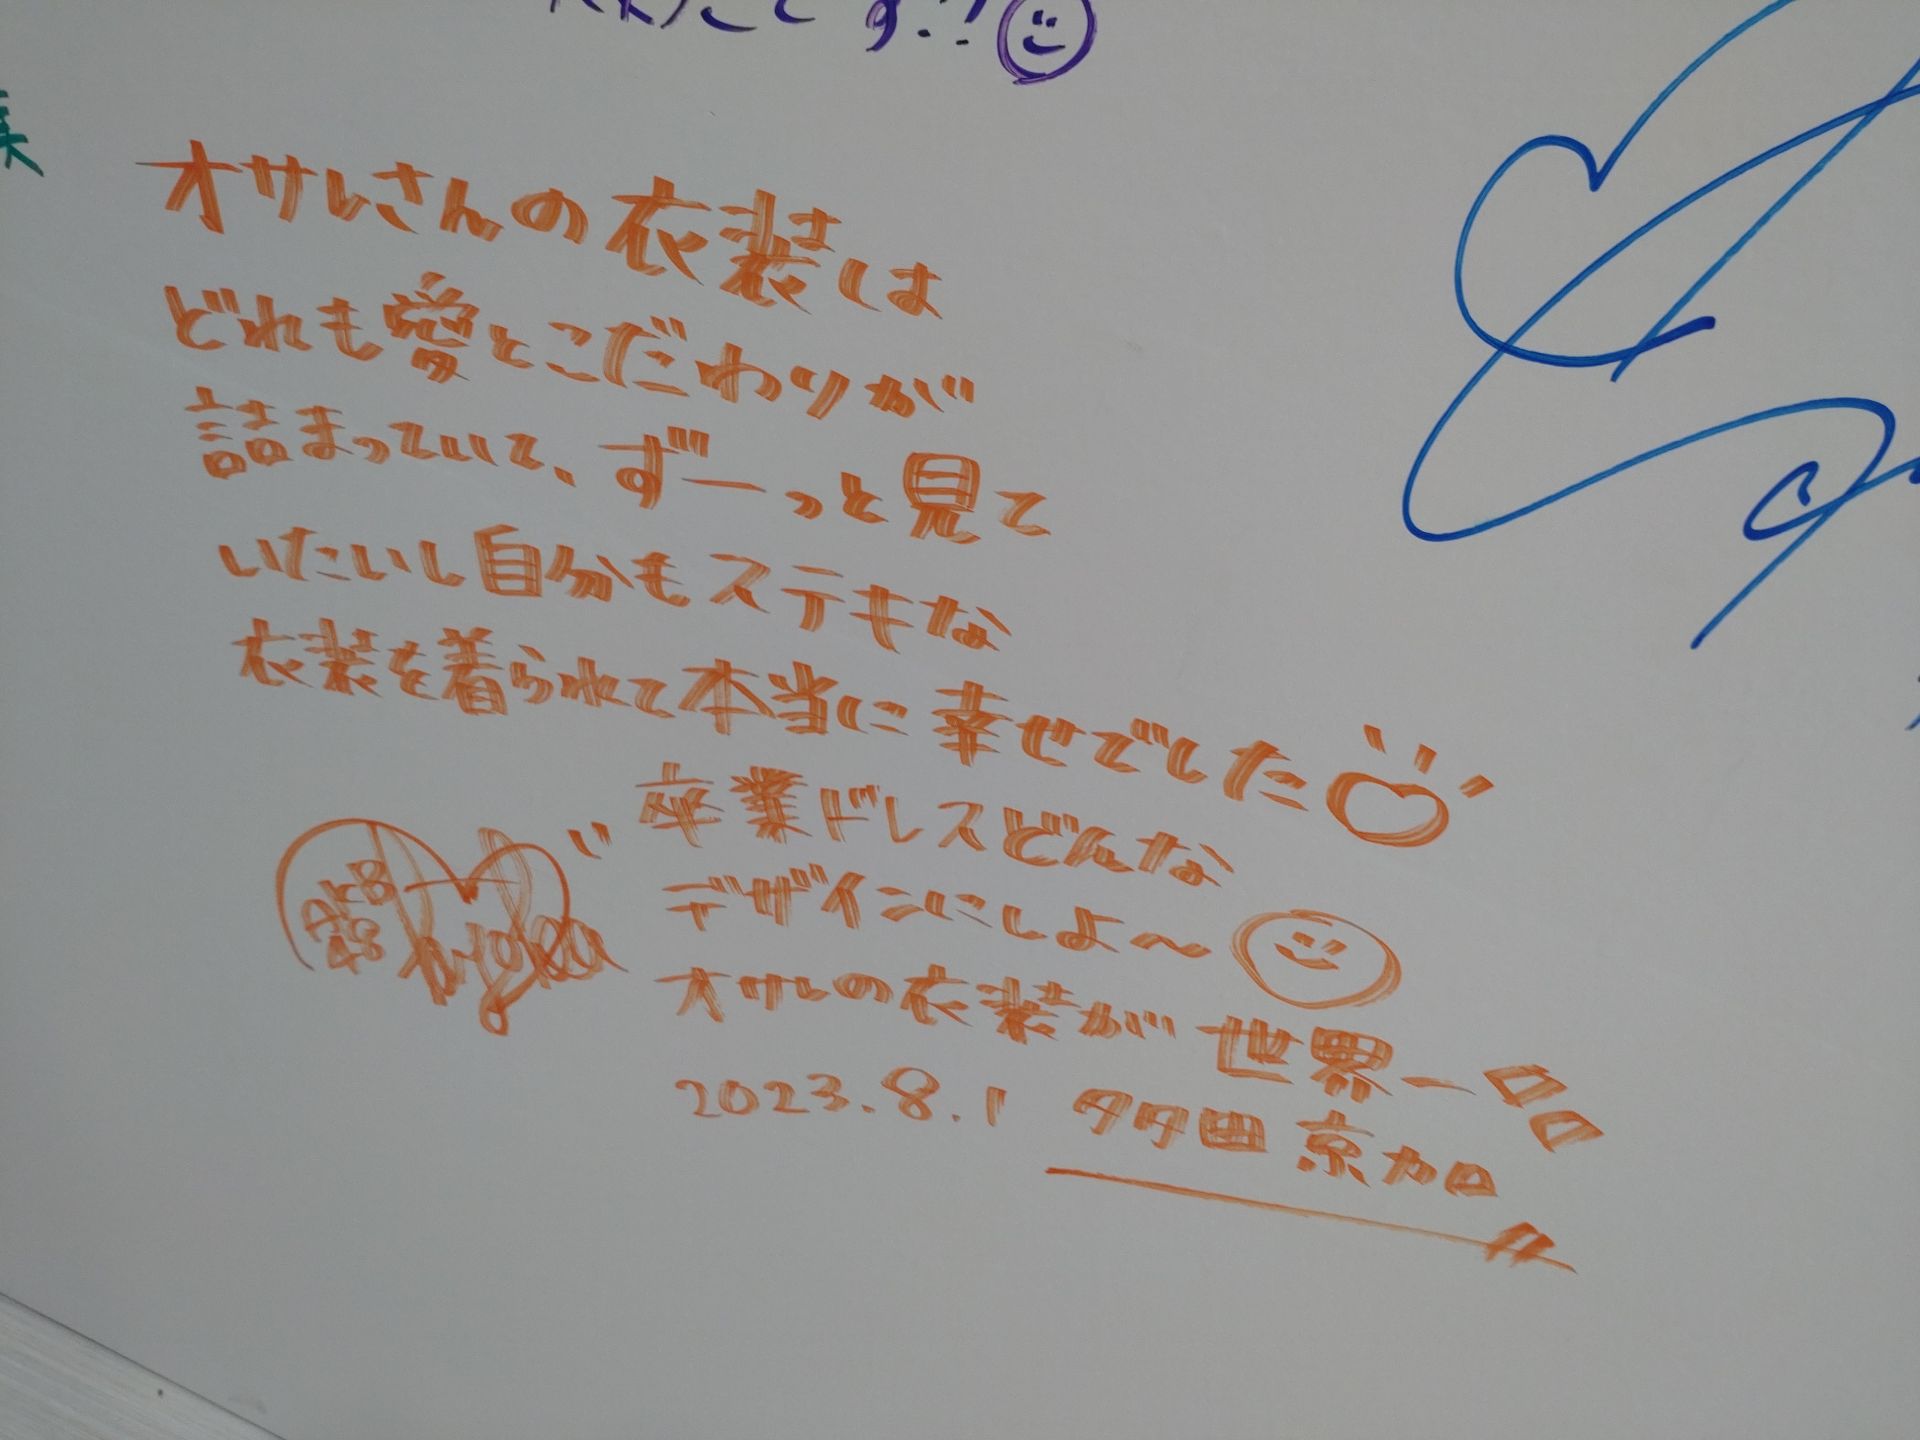 です!!
オサレさんの衣装は
どれも愛とこだわりが
詰まっていて、ずーっと見て
いたいし自分もステキな
衣装を着られて本当に幸せでした
卒業ドレスどんな
デザインにしよ〜
オサレの衣装が世界一!!
AKB
48
2023.8.1 多田京加